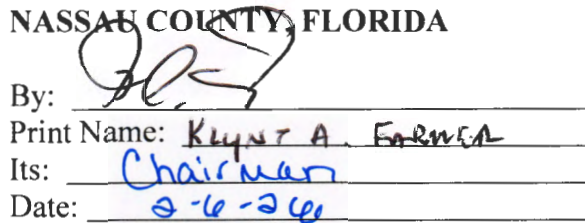 NASSAU COUNTY, FLORIDA
By:
Print Name: Klynt A. Farmer
Its: Chairman
Date: 2-6-26